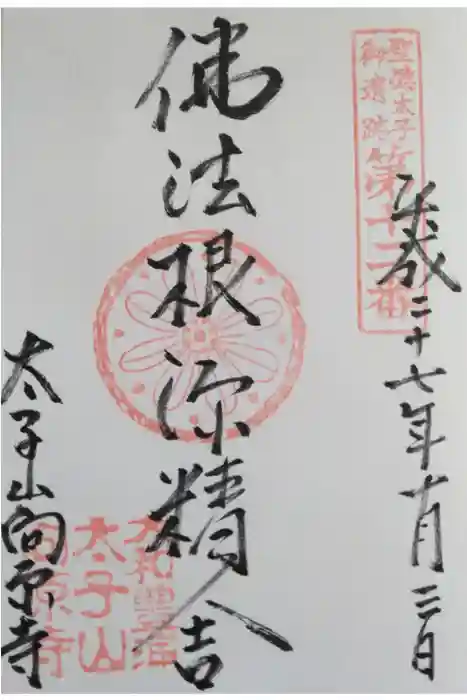 聖徳太子
御遺跡
第十一番
平成二十七年十月三日
佛法根源精舎
太子山向原寺
大和豊浦
太子山
向原寺